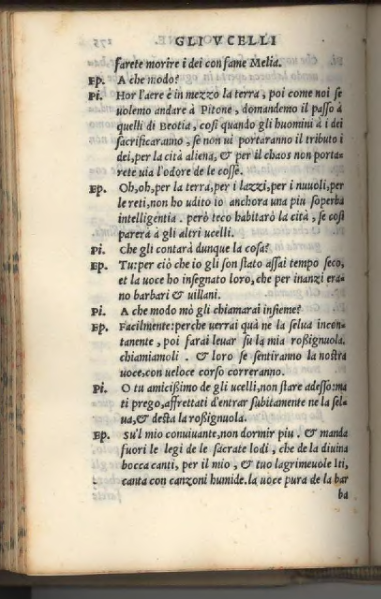 GLI VCELLI
farete morire i dei con fame Melia.
Ep. A che modo?
Pi. Hor l'aere è in mezzo la terra, poi come noi se
uolemo andare à Pitone, domandemo il passo à
quelli di Beotia, così quando gli huomini à i dei
sacrificaranno, se non ui portaranno il tributo i
dei, per la cità aliena, & per il chaos non porta-
rete uia l'odore de le cosse.
Ep. Oh, oh, per la terra, per i lazzi, per i nuuoli, per
le reti, non ho udito io anchora una piu soperba
intelligentia. però teco habitarò la cità, se così
parerà à gli altri ucelli.
Pi. Che gli contarà dunque la cosa?
Ep. Tu: per ciò che io gli son stato assai tempo seco,
et la uoce ho insegnato loro, che per inanzi era-
no barbari & uillani.
Pi. A che modo mò gli chiamarai insieme?
Ep. Facilmente: perche uerrai quà ne la selua incon-
tanente, poi farai leuar su la mia roßignuola.
chiamiamoli. & loro se sentiranno la nostra
uoce, con ueloce corso correranno.
Pi. O tu amicißimo de gli ucelli, non stare adesso: ma
ti prego, affrettati d'entrar subitamente ne la sel-
ua, & desta la roßignuola.
Ep. Su'l mio conuiuante, non dormir piu. & manda
fuori le legi de le sacrate lodi, che de la diuina
bocca canti, per il mio, & tuo lagrimeuole Iti,
canta con canzoni humide. la uoce pura de la bar
ba